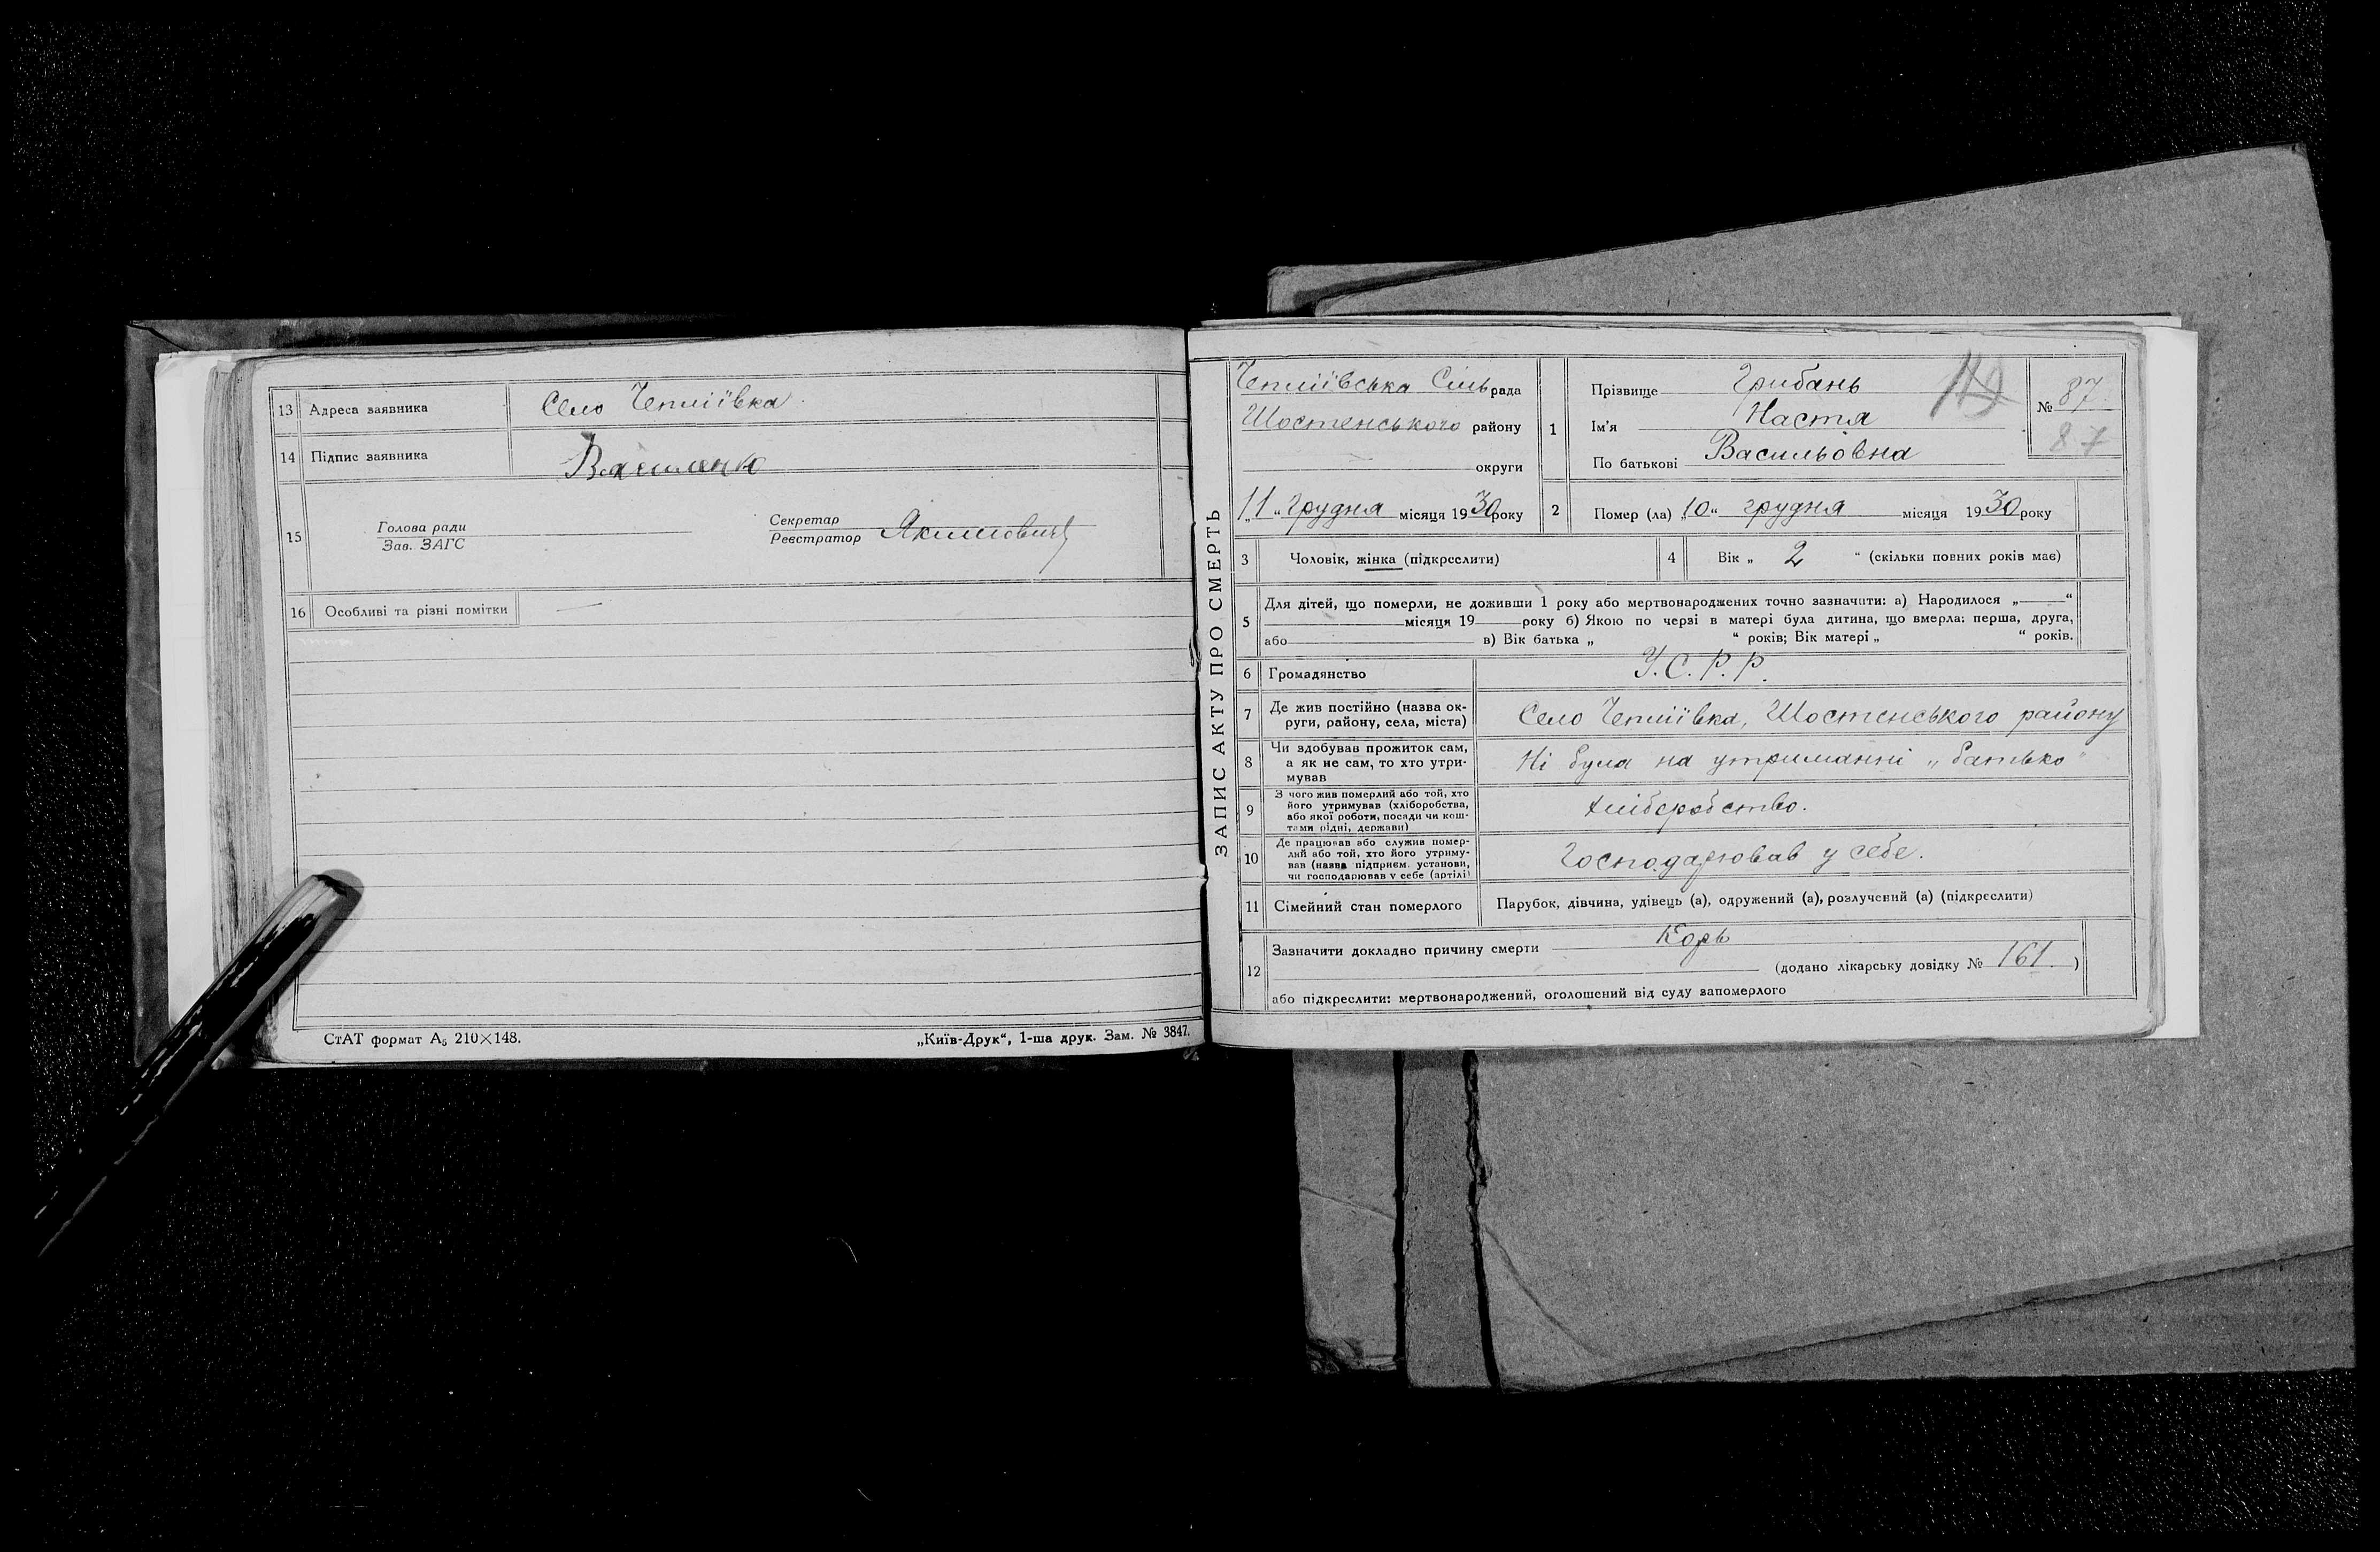 13 Адреса заявника Село Чепліївка
14 Підпис заявника Василенко
15
Голова ради
Зав. ЗАГС
Секретар
Реєстратор Якимович
16 Особливі та різні помітки —
СтАТ формат А₅ 210×148.
„Київ-Друк“, 1-ша друк. Зам. № 3847.
ЗАПИС АКТУ ПРО СМЕРТЬ
Чепліївська Сільрада
Шостенського району
— округи
„11“ Грудня місяця 1930 року
1 Прізвище Грибань
Ім'я Настя
По батькові Васильовна
№ 87
87
2 Помер (ла) „10“ грудня місяця 1930 року
3 Чоловік, жінка (підкреслити)
4 Вік „ 2 “ (скільки повних років має)
5 Для дітей, що померли, не доживши 1 року або мертвонароджених точно зазначити: а) Народилося „——“
місяця 19 — року б) Якою по черзі в матері була дитина, що вмерла: перша, друга,
або в) Вік батька „ “ років; Вік матері „ “ років.
6 Громадянство У.С.Р.Р.
7 Де жив постійно (назва округи, району, села, міста) Село Чепліївка, Шостенського району
8 Чи здобував прожиток сам,
а як не сам, то хто утримував
Ні була на утриманні „батько“
9 З чого жив померлий або той, хто
його утримував (хліборобства,
або якої роботи, посади чи коштами рідні, держави)
хліборобство.
10 Де працював або служив померлий або той, хто його утримував (назва підприєм. установи,
чи господарював у себе (артілі)
Господарював у себе.
11 Сімейний стан померлого Парубок, дівчина, удівець (а), одружений (а), розлучений (а) (підкреслити)
12 Зазначити докладно причину смерти Корь
(додано лікарську довідку № 161. )
або підкреслити: мертвонароджений, оголошений від суду запомерлого